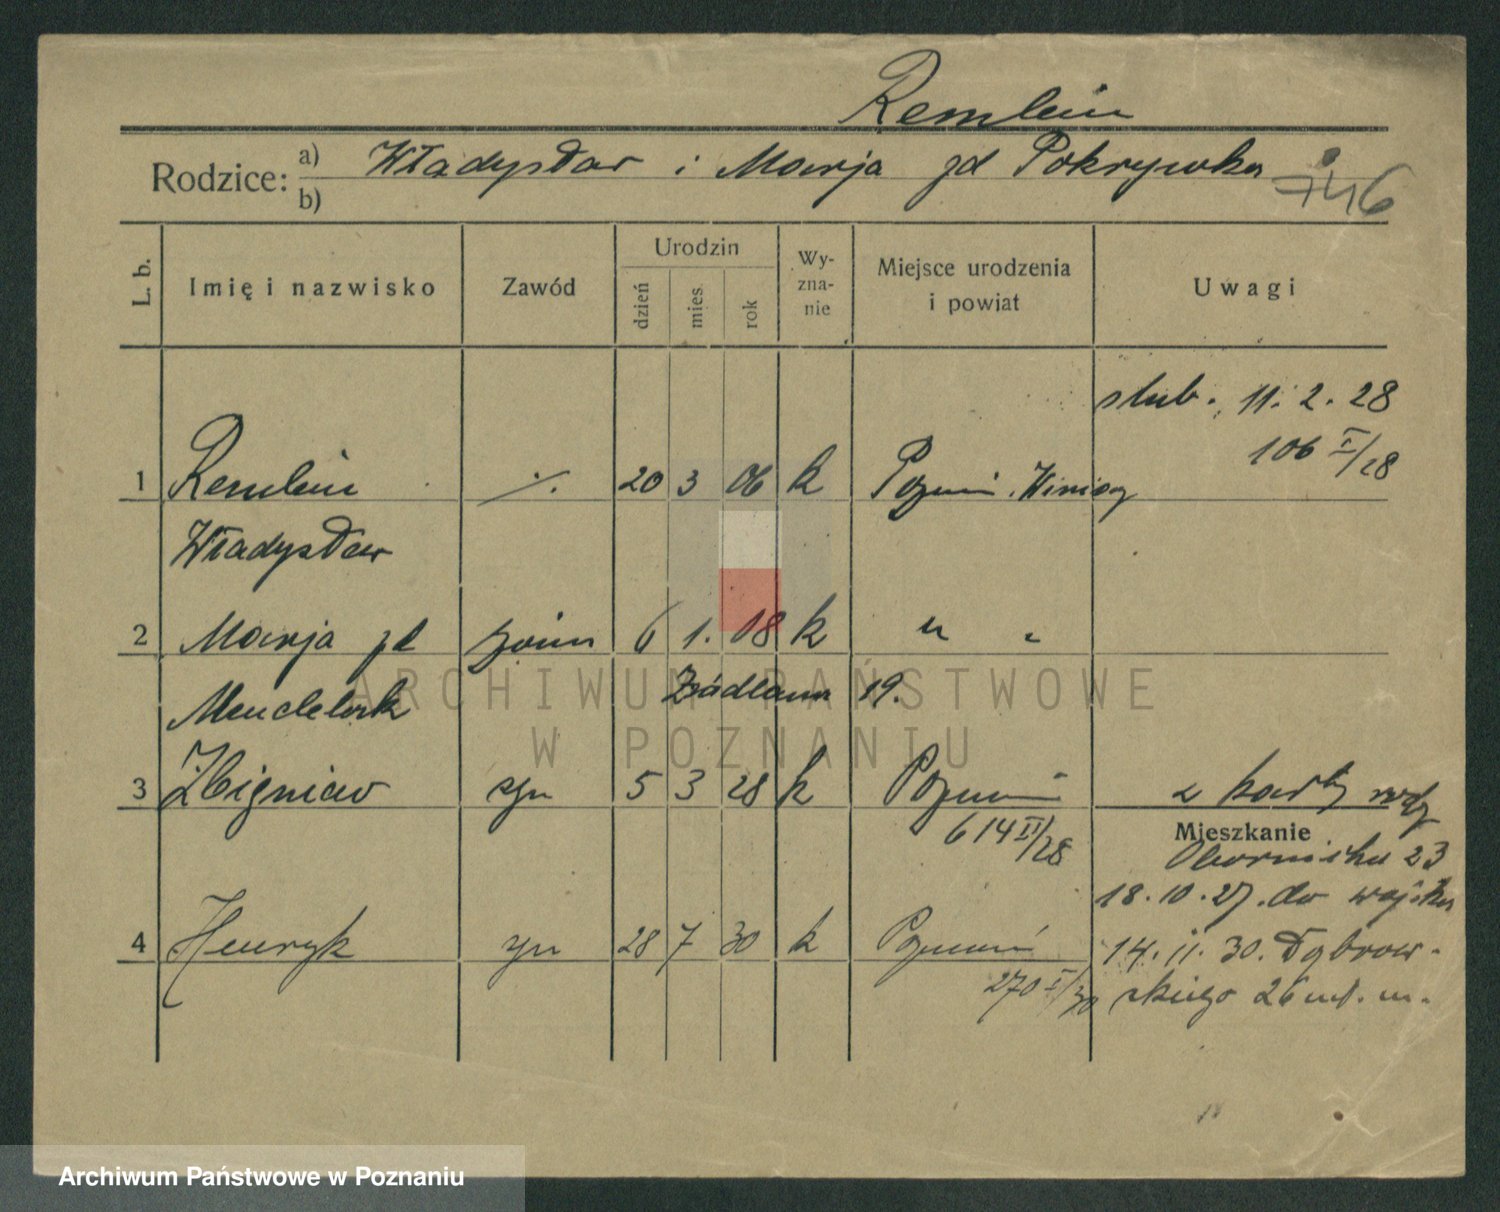 Remlein
Rodzice: a) Władysław i Marja zd Pokrywka
b)
746
L. b.
Imię i nazwisko
Zawód
Urodzin
dzień
mies.
rok
Wy-
zna-
nie
Miejsce urodzenia
i powiat
Uwagi
ślub. 11. 2. 28
106 I/28
1 Remlein ./. 20 3 06 k Poznań. Winiary
Władysław
2 Marja zd żona 6 1. 08 k " "
Źródlana 19.
3 Zbigniew syn 5 3 28 k Poznań z karty
614 II/28
Mieszkanie
Obornicka 23
18. 10. 27. do wojska
4 Henryk syn 28 7 30 k Poznań
270 I/30
14. 11. 30. Dąbrow-
skiego 26 m.
ARCHIWUM PAŃSTWOWE
W POZNANIU
Archiwum Państwowe w Poznaniu